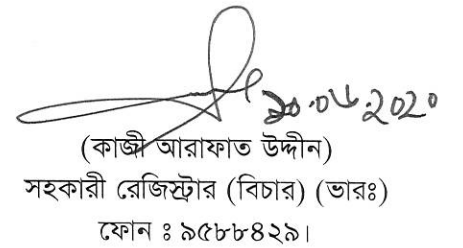 ১০.০৬.২০২০
(কাজী আরাফাত উদ্দীন)
সহকারী রেজিস্ট্রার (বিচার) (ভারঃ)
ফোন ঃ ৯৫৮৮৪২৯।